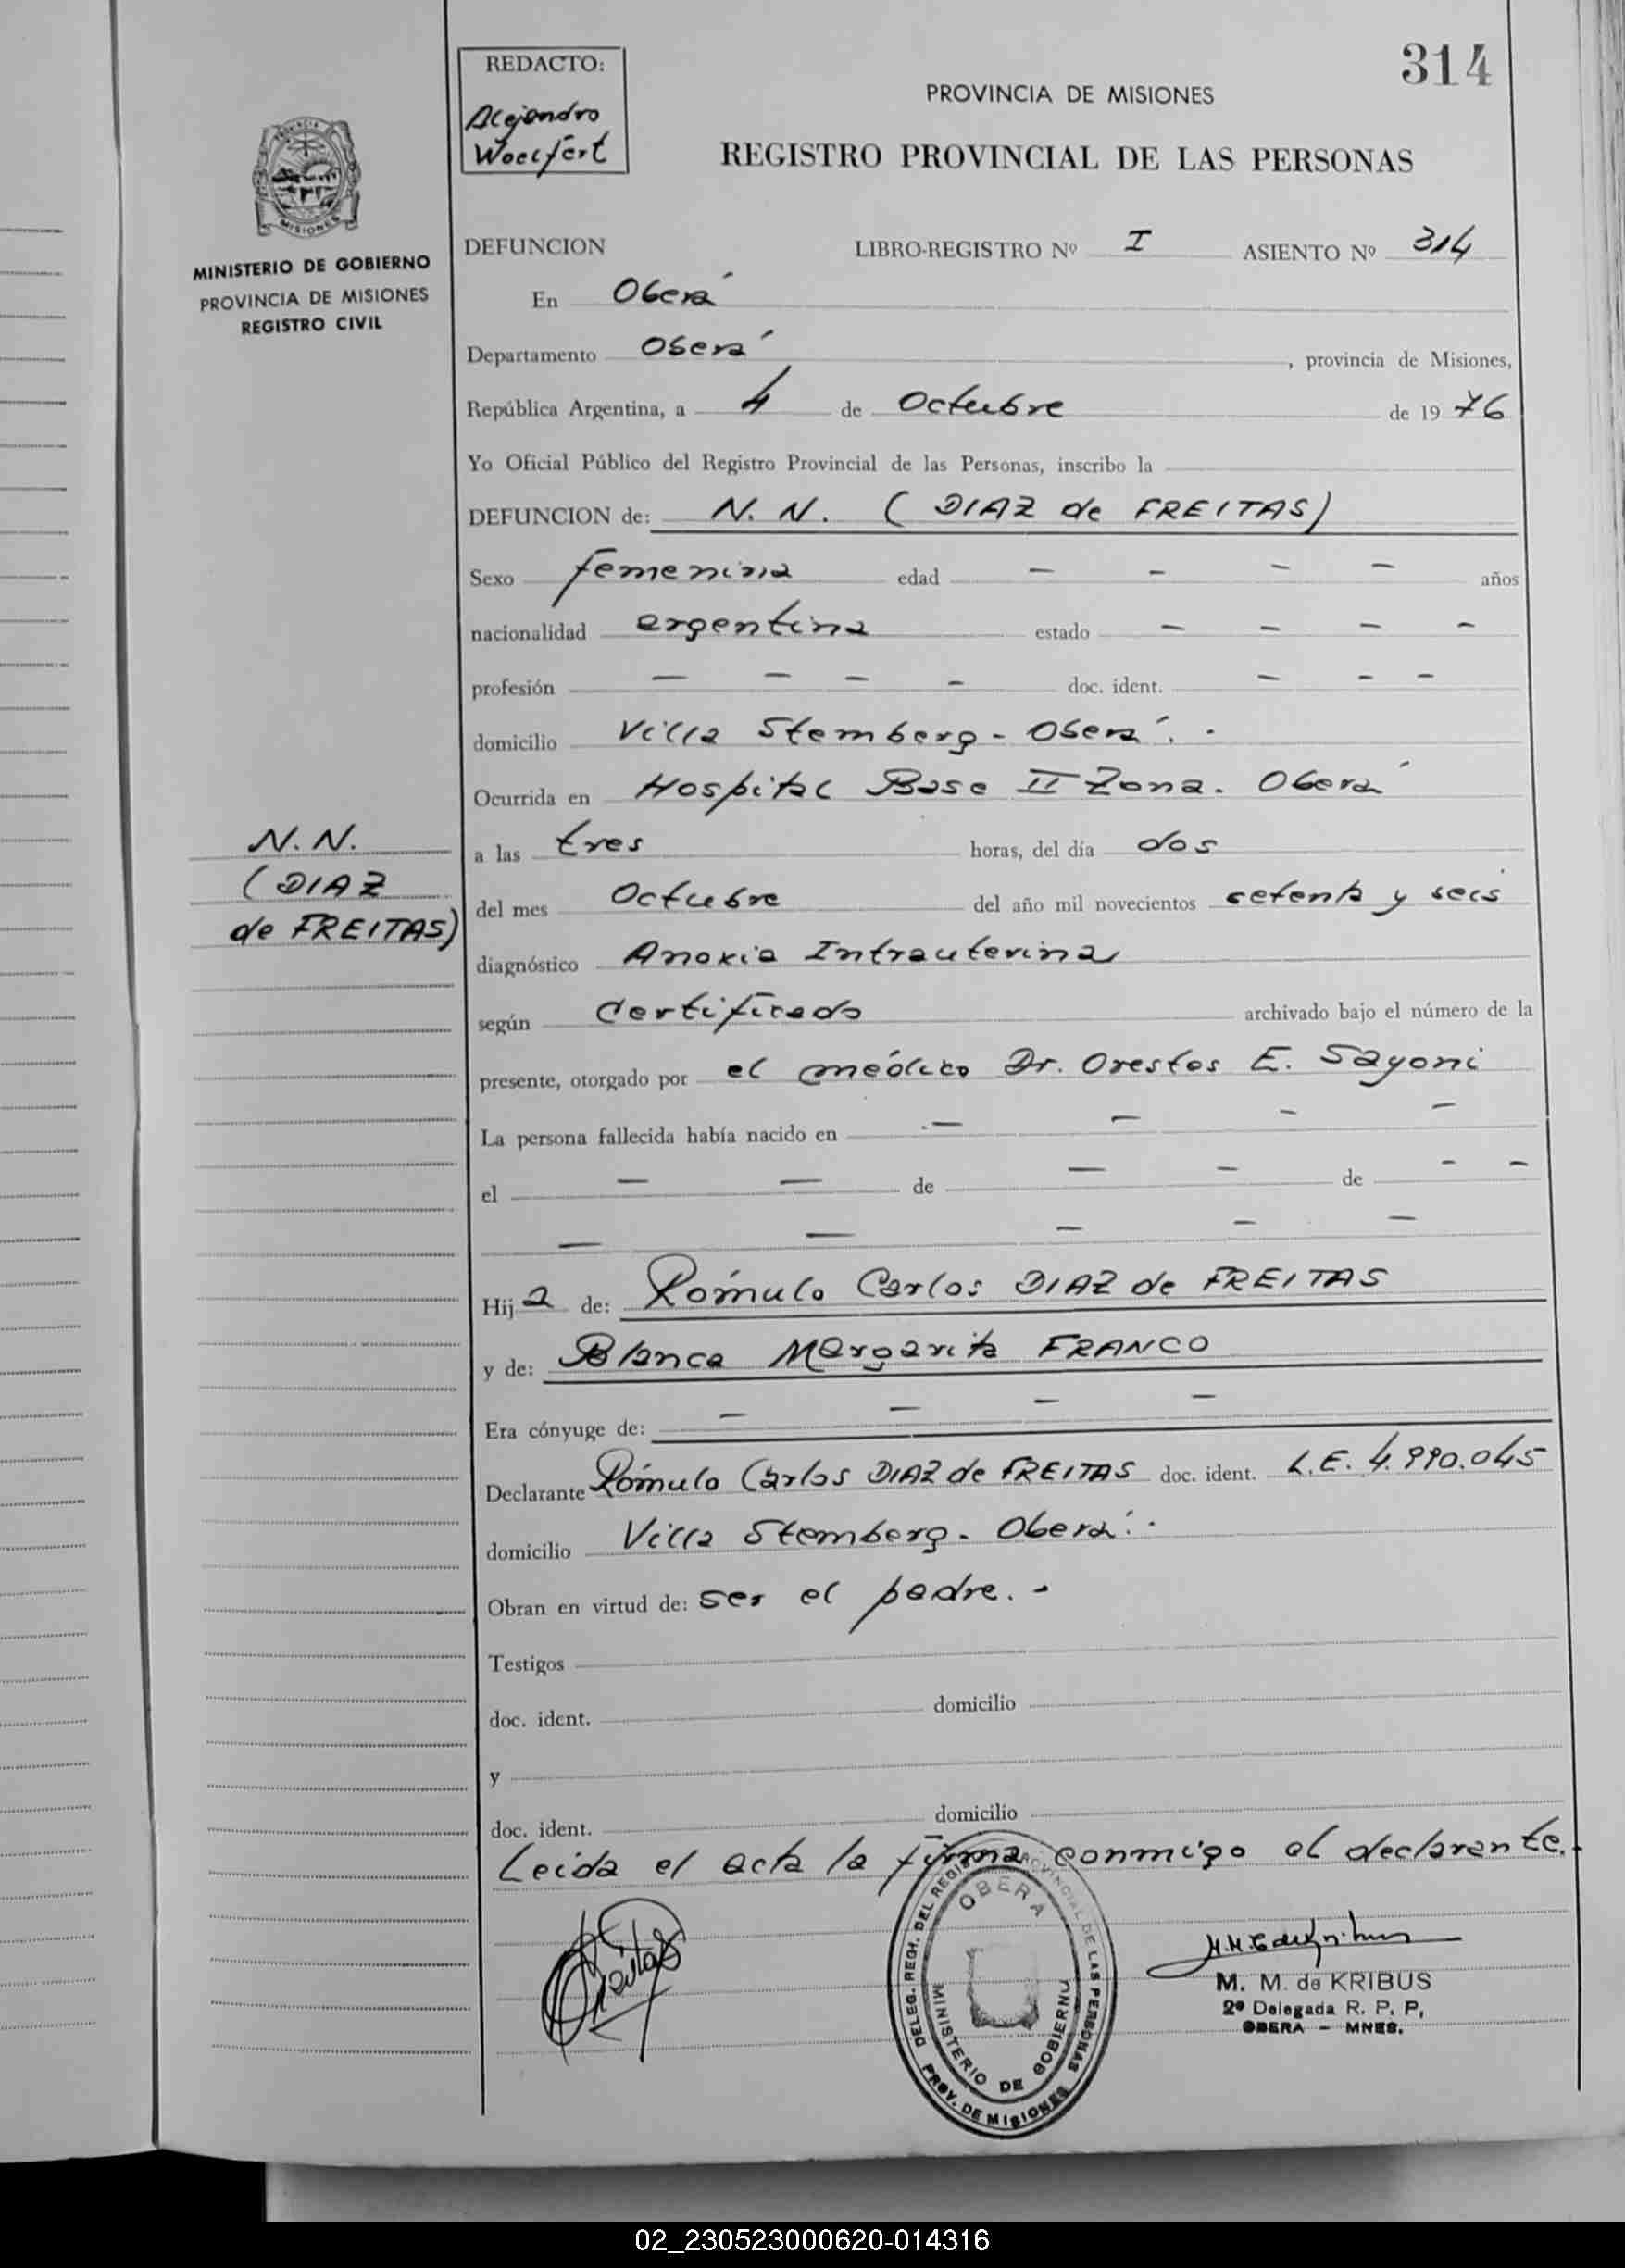 314
REDACTO:
Alejandro
Woelfert
PROVINCIA DE MISIONES
REGISTRO PROVINCIAL DE LAS PERSONAS
MISIONES
MINISTERIO DE GOBIERNO
PROVINCIA DE MISIONES
REGISTRO CIVIL
DEFUNCION LIBRO-REGISTRO Nº I ASIENTO Nº 314
En Oberá
Departamento Oberá, provincia de Misiones,
República Argentina, a 4 de Octubre de 1976
Yo Oficial Público del Registro Provincial de las Personas, inscribo la
DEFUNCION de: N. N. (DIAZ de FREITAS)
Sexo femenina edad — — — — años
nacionalidad argentina estado — — — —
profesión — — — — doc. ident. — — —
domicilio Villa Stemberg - Oberá. -
Ocurrida en Hospital Base II Zona. Oberá
a las tres horas, del día dos
del mes Octubre del año mil novecientos setenta y seis
diagnóstico Anoxia Intrauterina
según Certificado archivado bajo el número de la
presente, otorgado por el médico Dr. Orestes E. Sayoni
La persona fallecida había nacido en — — — —
el — — de — — de — —
— — — —
Hija de: Rómulo Carlos DIAZ de FREITAS
y de: Blanca Margarita FRANCO
Era cónyuge de: — — — —
Declarante Rómulo Carlos DIAZ de FREITAS doc. ident. L.E. 4.990.045
domicilio Villa Stemberg. Oberá. -
Obran en virtud de: ser el padre. -
Testigos
doc. ident. domicilio
y
doc. ident. domicilio
Leida el acta la firma conmigo el declarante.
N. N.
(DIAZ
de FREITAS)
Freitas
DELEG. REGH. DEL REGISTRO PROVINCIAL DE LAS PERSONAS
OBERA
MINISTERIO DE GOBIERNO
PROV. DE MISIONES
M. M. de KRIBUS
2º Delegada R. P. P,
OBERA — MNES.
02_230523000620-014316